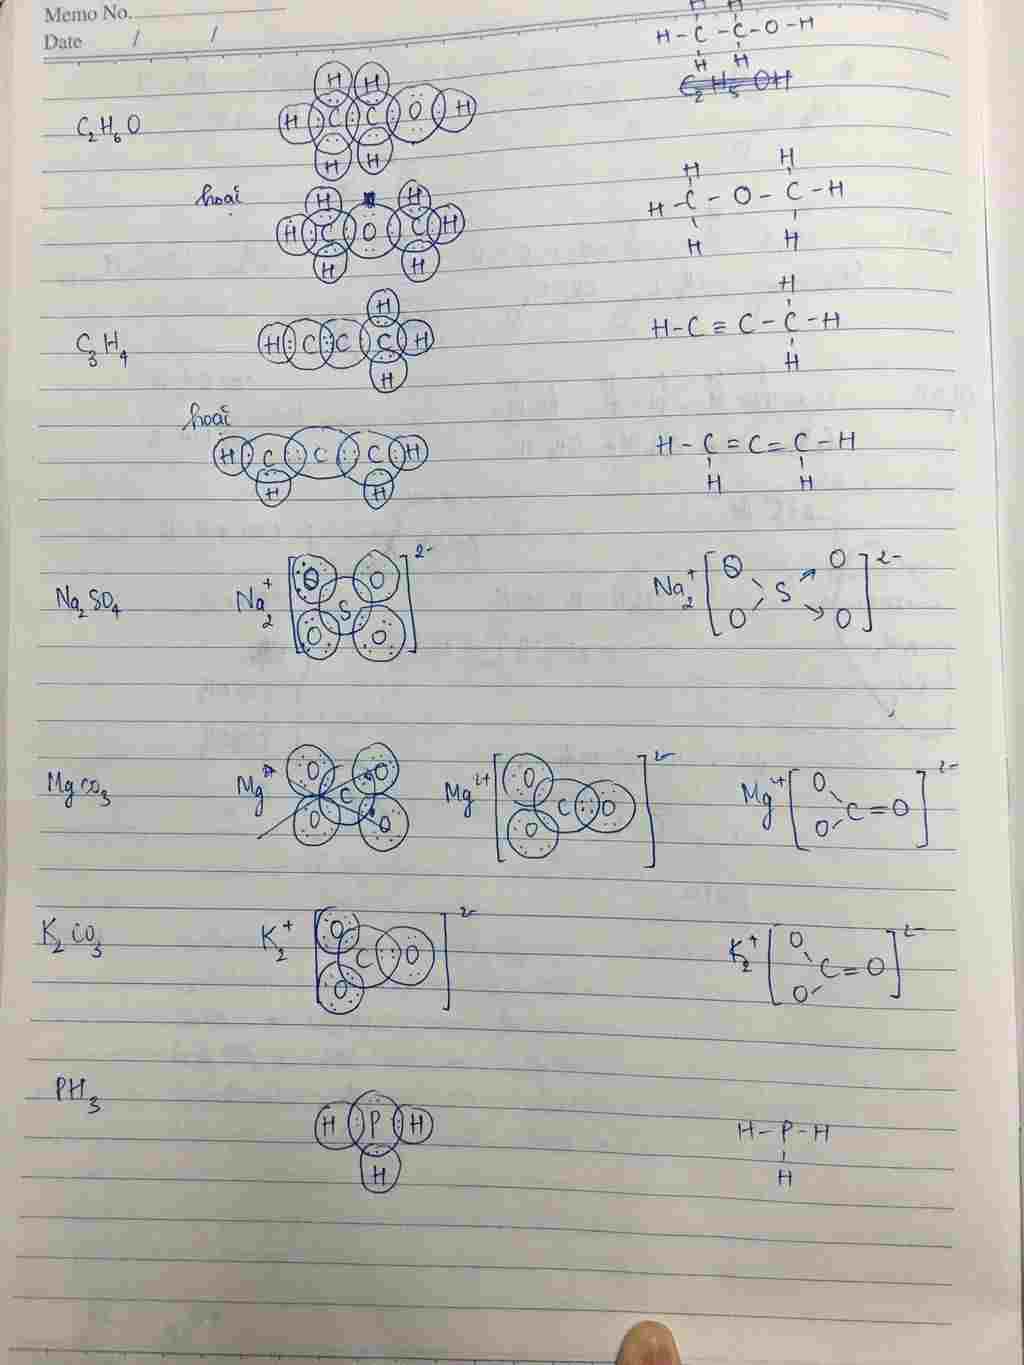 Memo No.
Date / /
C₂H₆O H H C C O H H H H-C-C-O-H H H
C₂H₅OH
hoặc H H H C O C H H H H H H-C-O-C-H H H
C₃H₄ H H C C C H H H H-C≡C-C-H H
hoặc
H C C C H H H H-C=C=C-H H H
Na₂SO₄ Na₂⁺ [O O S O O]²⁻ Na₂⁺ [O O S O O]²⁻
MgCO₃ Mg O O C O O Mg²⁺ [O C O O]²⁻ Mg²⁺ [O C=O O]²⁻
K₂CO₃ K₂⁺ [O C O O]²⁻ K₂⁺ [O C=O O]²⁻
PH₃ H P H H H-P-H H